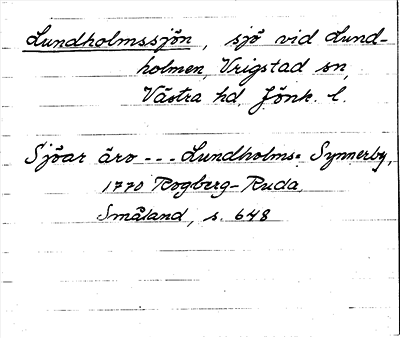 Lundholmssjön, sjö vid Lund-
holmen, Vrigstad sn,
Västra hd. Jönk. l.
Sjöar äro --- Lundholms= Synnerby,
1770 Rogberg-Ruda,
Småland, s. 648